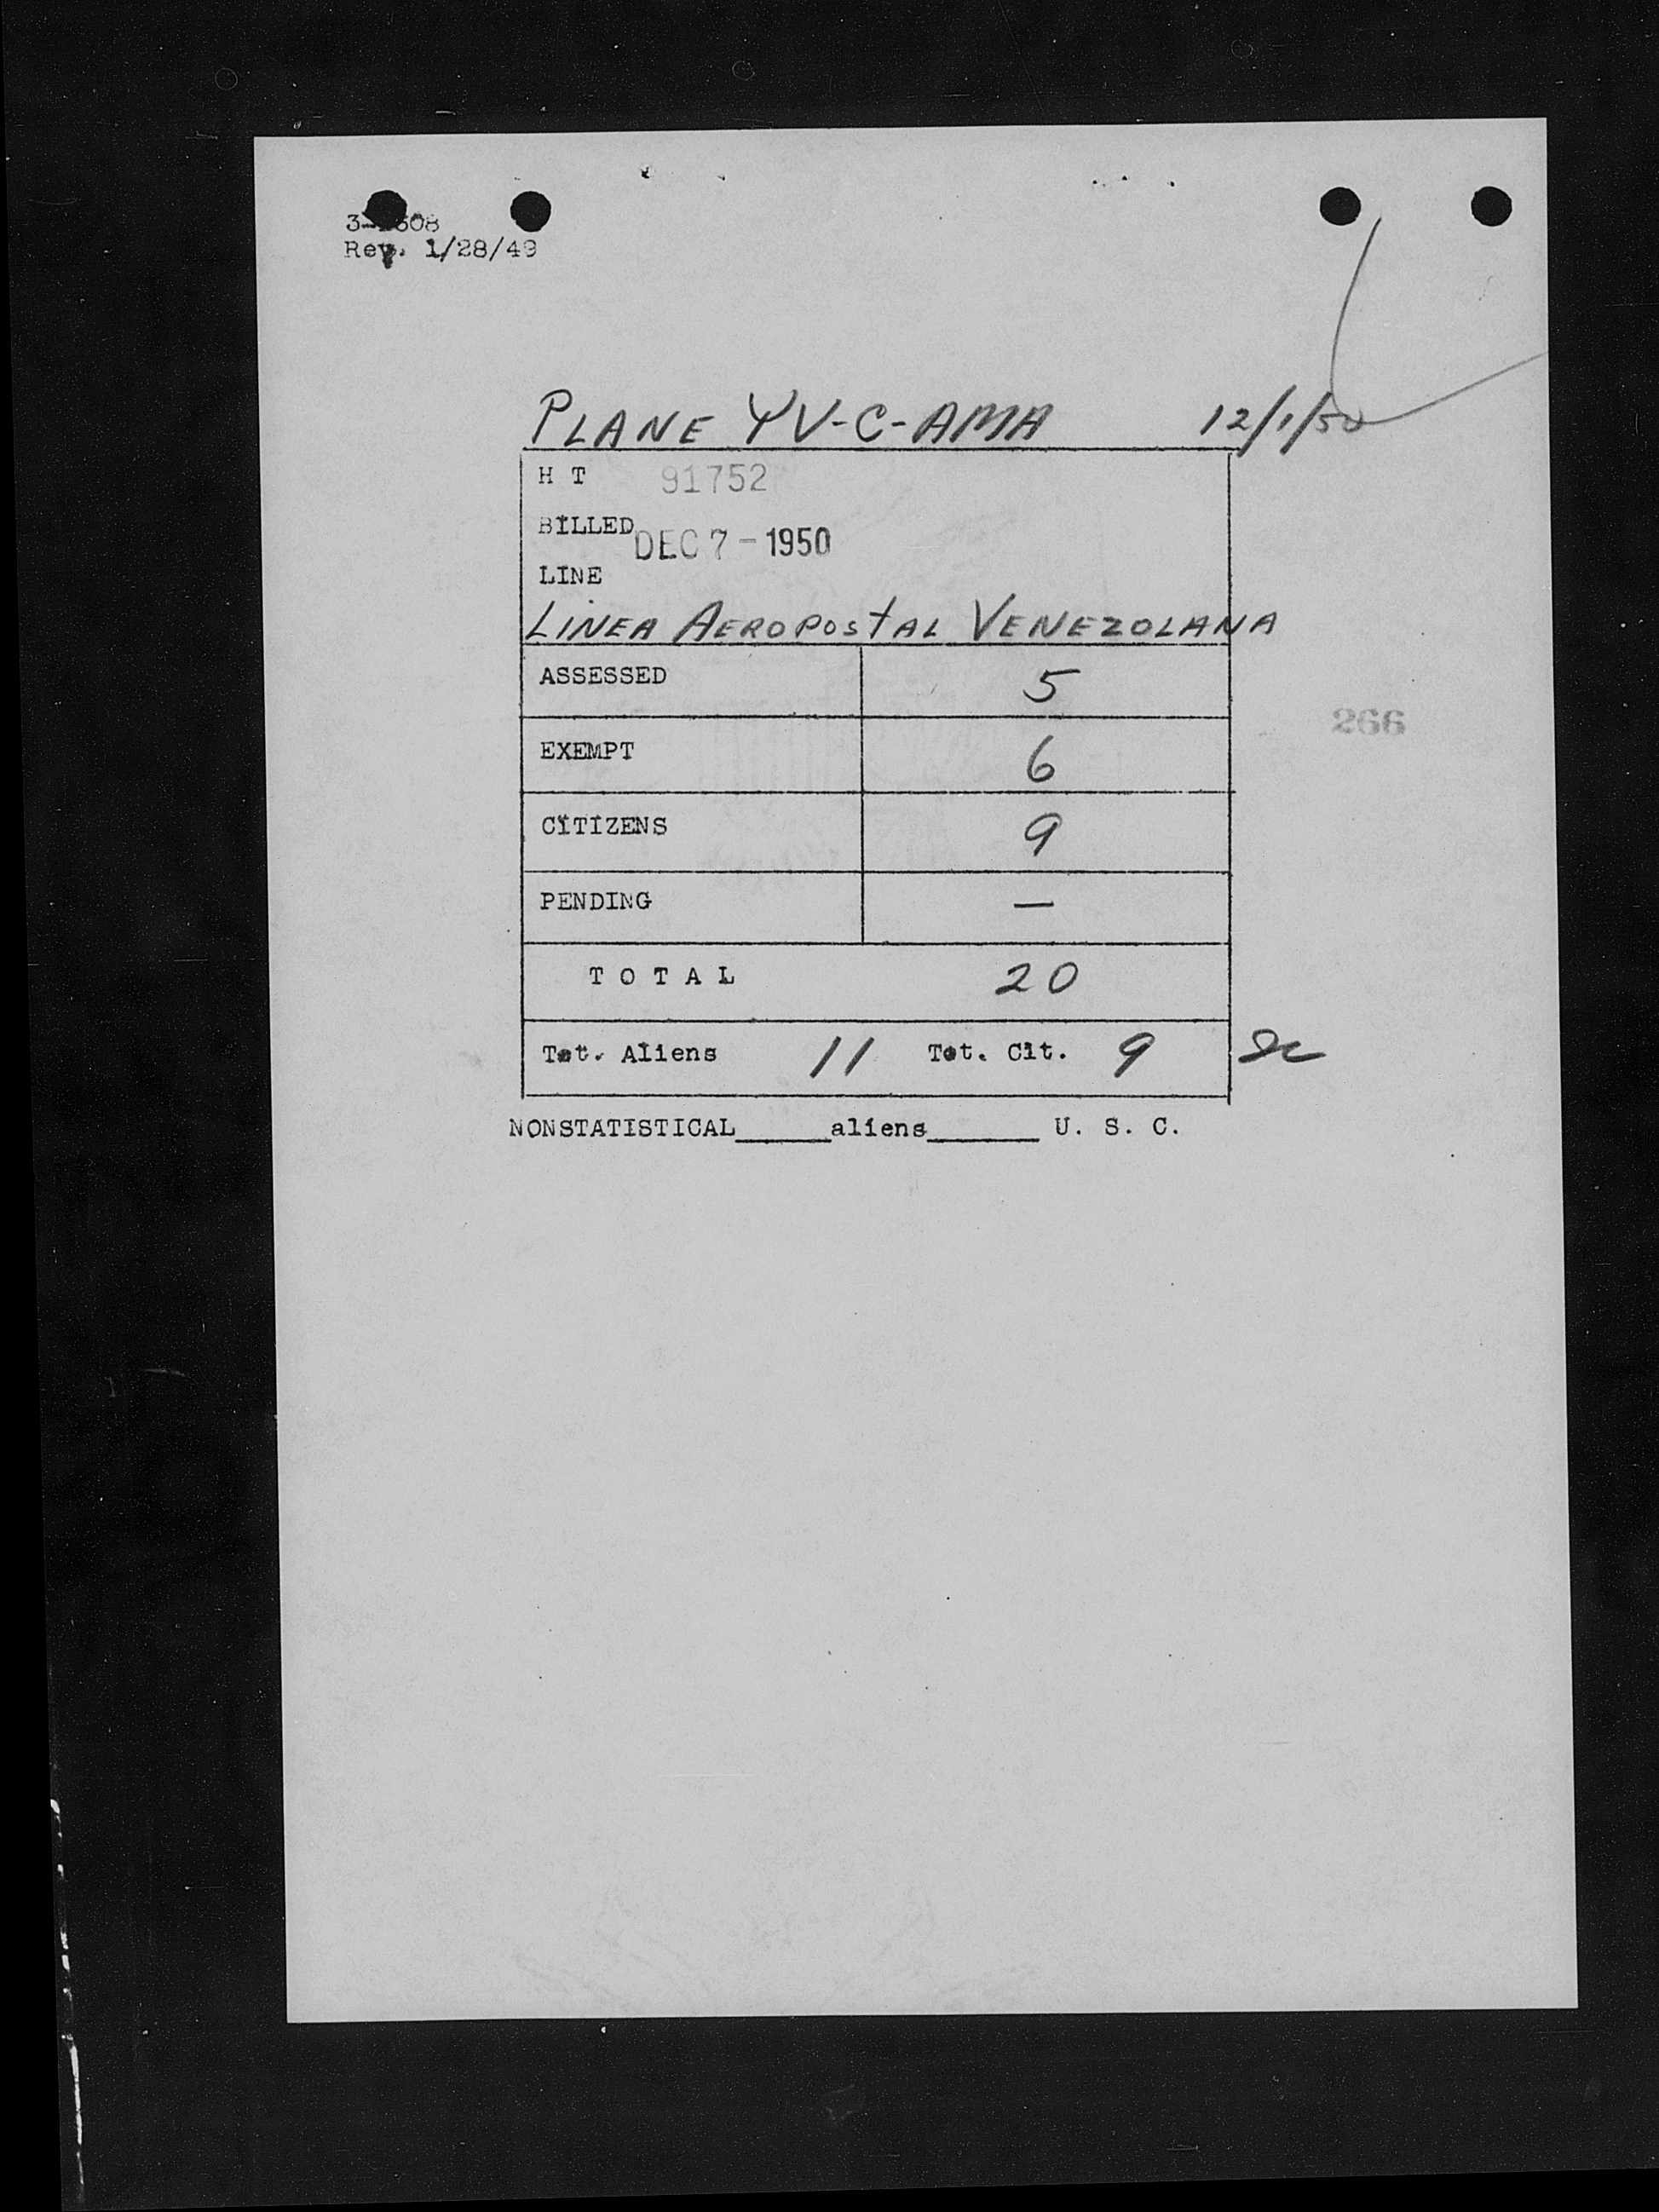 Rev. 1/28/49
PLANE YV-C-AMA 12/1/50
H T 91752
BILLED DEC 7 - 1950
LINE
LINEA AEROPOSTAL VENEZOLANA
ASSESSED 5
266
EXEMPT 6
CITIZENS 9
PENDING —
T O T A L 20
Tot. Aliens 11 Tot. Cit. 9
NONSTATISTICAL______aliens_______ U. S. C.